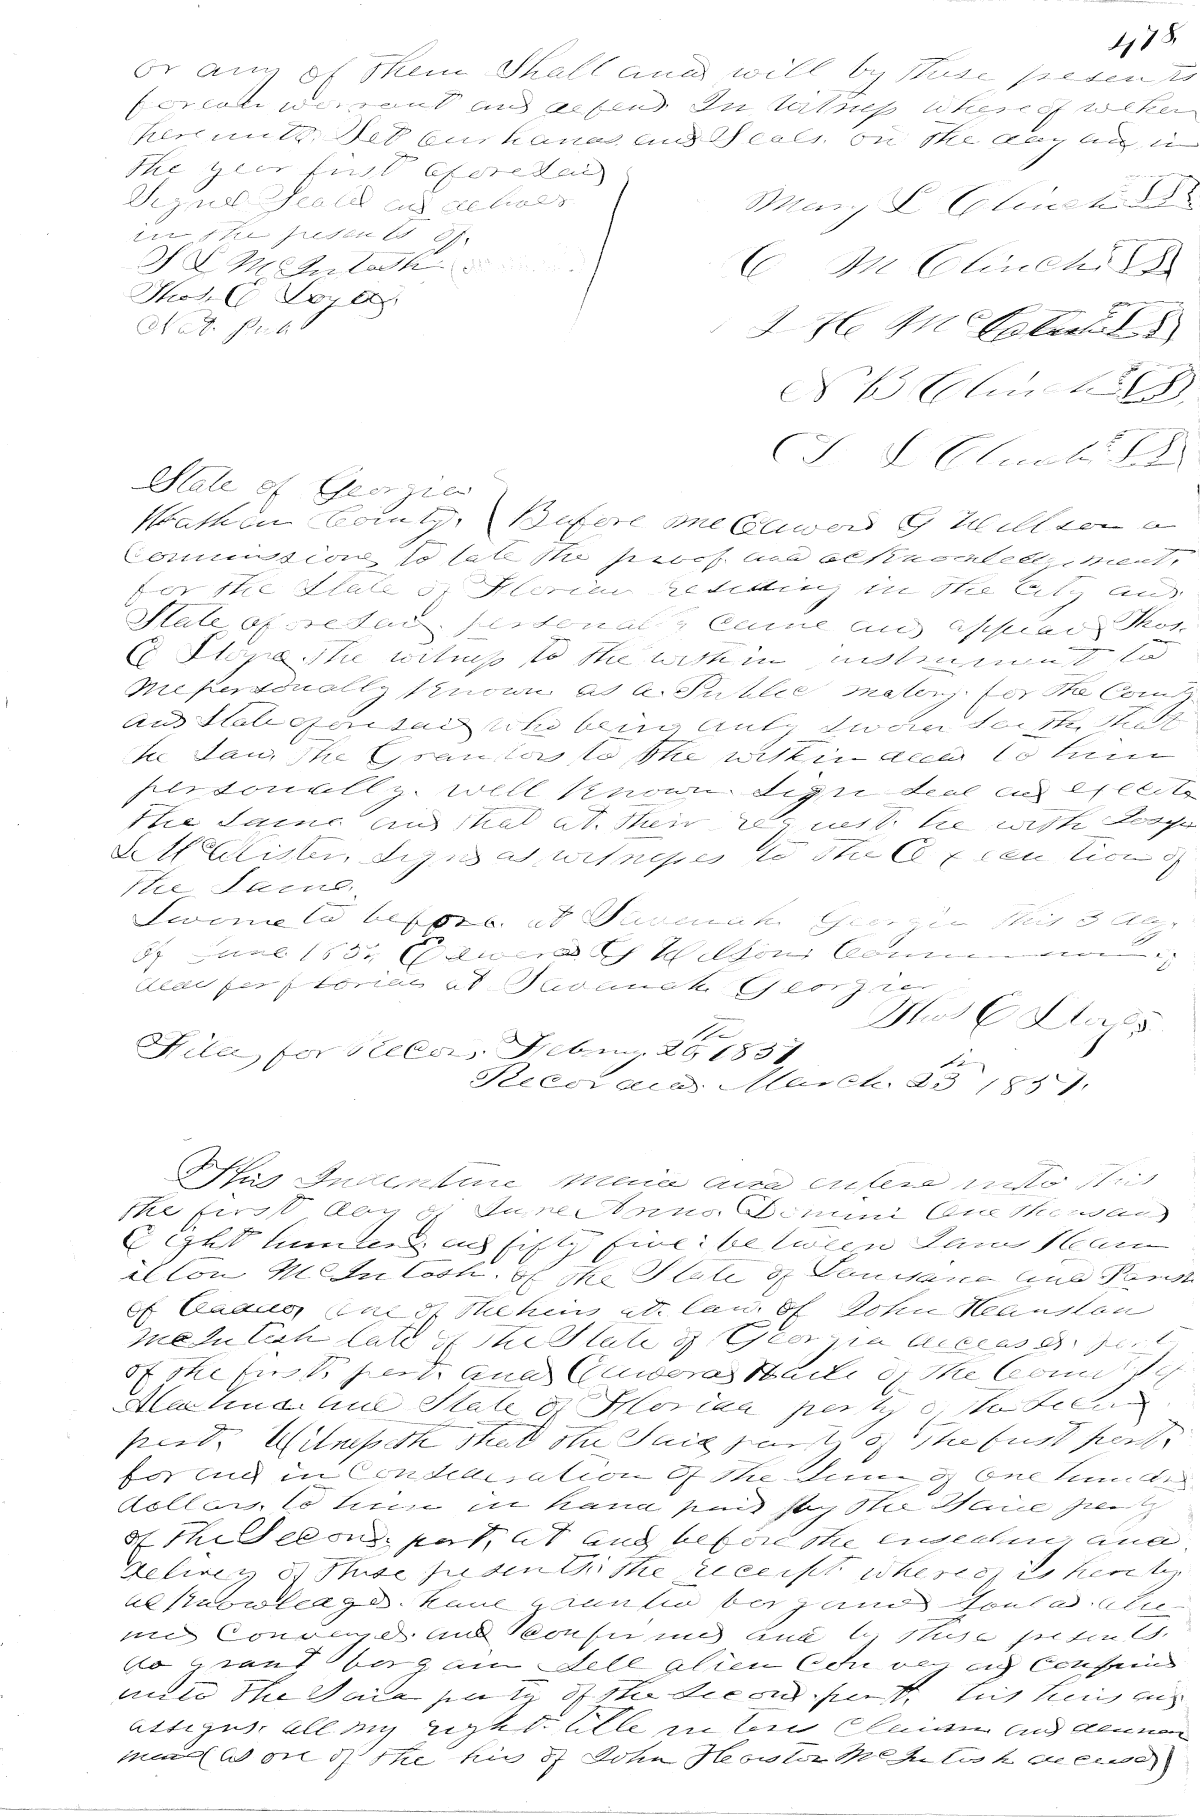 478.
or any of them Shall and will by these presents
forever warrant and defend In Witness whereof we have
hereunto Set our hands and Seals on the day and in
the year first aforesaid
Signed Sealed and deliver
in the presents of.
McIntosh
Thos. C
Not. Pub
Mary L Clinch LS
C M Clinch LS
LS
N B Clinch LS
L Clinch LS
State of Georgia
County. Before me Edward G Willson a
Commissioner to take the proof and acknowledgement.
for the State of Florida residing in the City and
State aforesaid personally came and appeard Thos.
C the witness to the within instrument to
me personally known as a Public for the County
and State aforesaid who being duly sworn Saith that
he Saw the Grantors to the within deed to him
personally well known Sign Seal and execute
the Same and that at their request he with
Signed as witnesses to the Execution of
the Same.
to before at Savanah Georgia this 3 day
of June 185 Edward G Wilson Commissioner
for Florida at Savanah Georgia
Thos C
Filed for Record Febury 26 the 1857
Recorded March 23 1857.
This Indenture made and enterd into this
the first day of June Anno. Domini One thousand
Eight hundred and fifty five: between James Ham
ilton McIntosh. of the State of Louisiana and Parish
of one of the heirs at law of John Heauston
McIntosh late of the State of Georgia deceased party
of the first part. and Edward Haile of the County of
Alachua and State of Florida party of the Second
part. Witnesseth that the Said party of the first part.
for and in Consideration of the Sum of One hundred
dollars to him in hand paid by the Said party
of the Second part, at and before the ensealing and
delivery of these presents the receipt whereof is hereby
acknowledged. have granted bargained Sold alie
ned Conveyed and Confirmed and by these presents.
do grant bargain Sell alien Convey and Confirm
unto the Said party of the Second part. his heirs and
assigns all my right title interes Claim and demand
as one of the heirs of John Heauston McIntosh deceased)